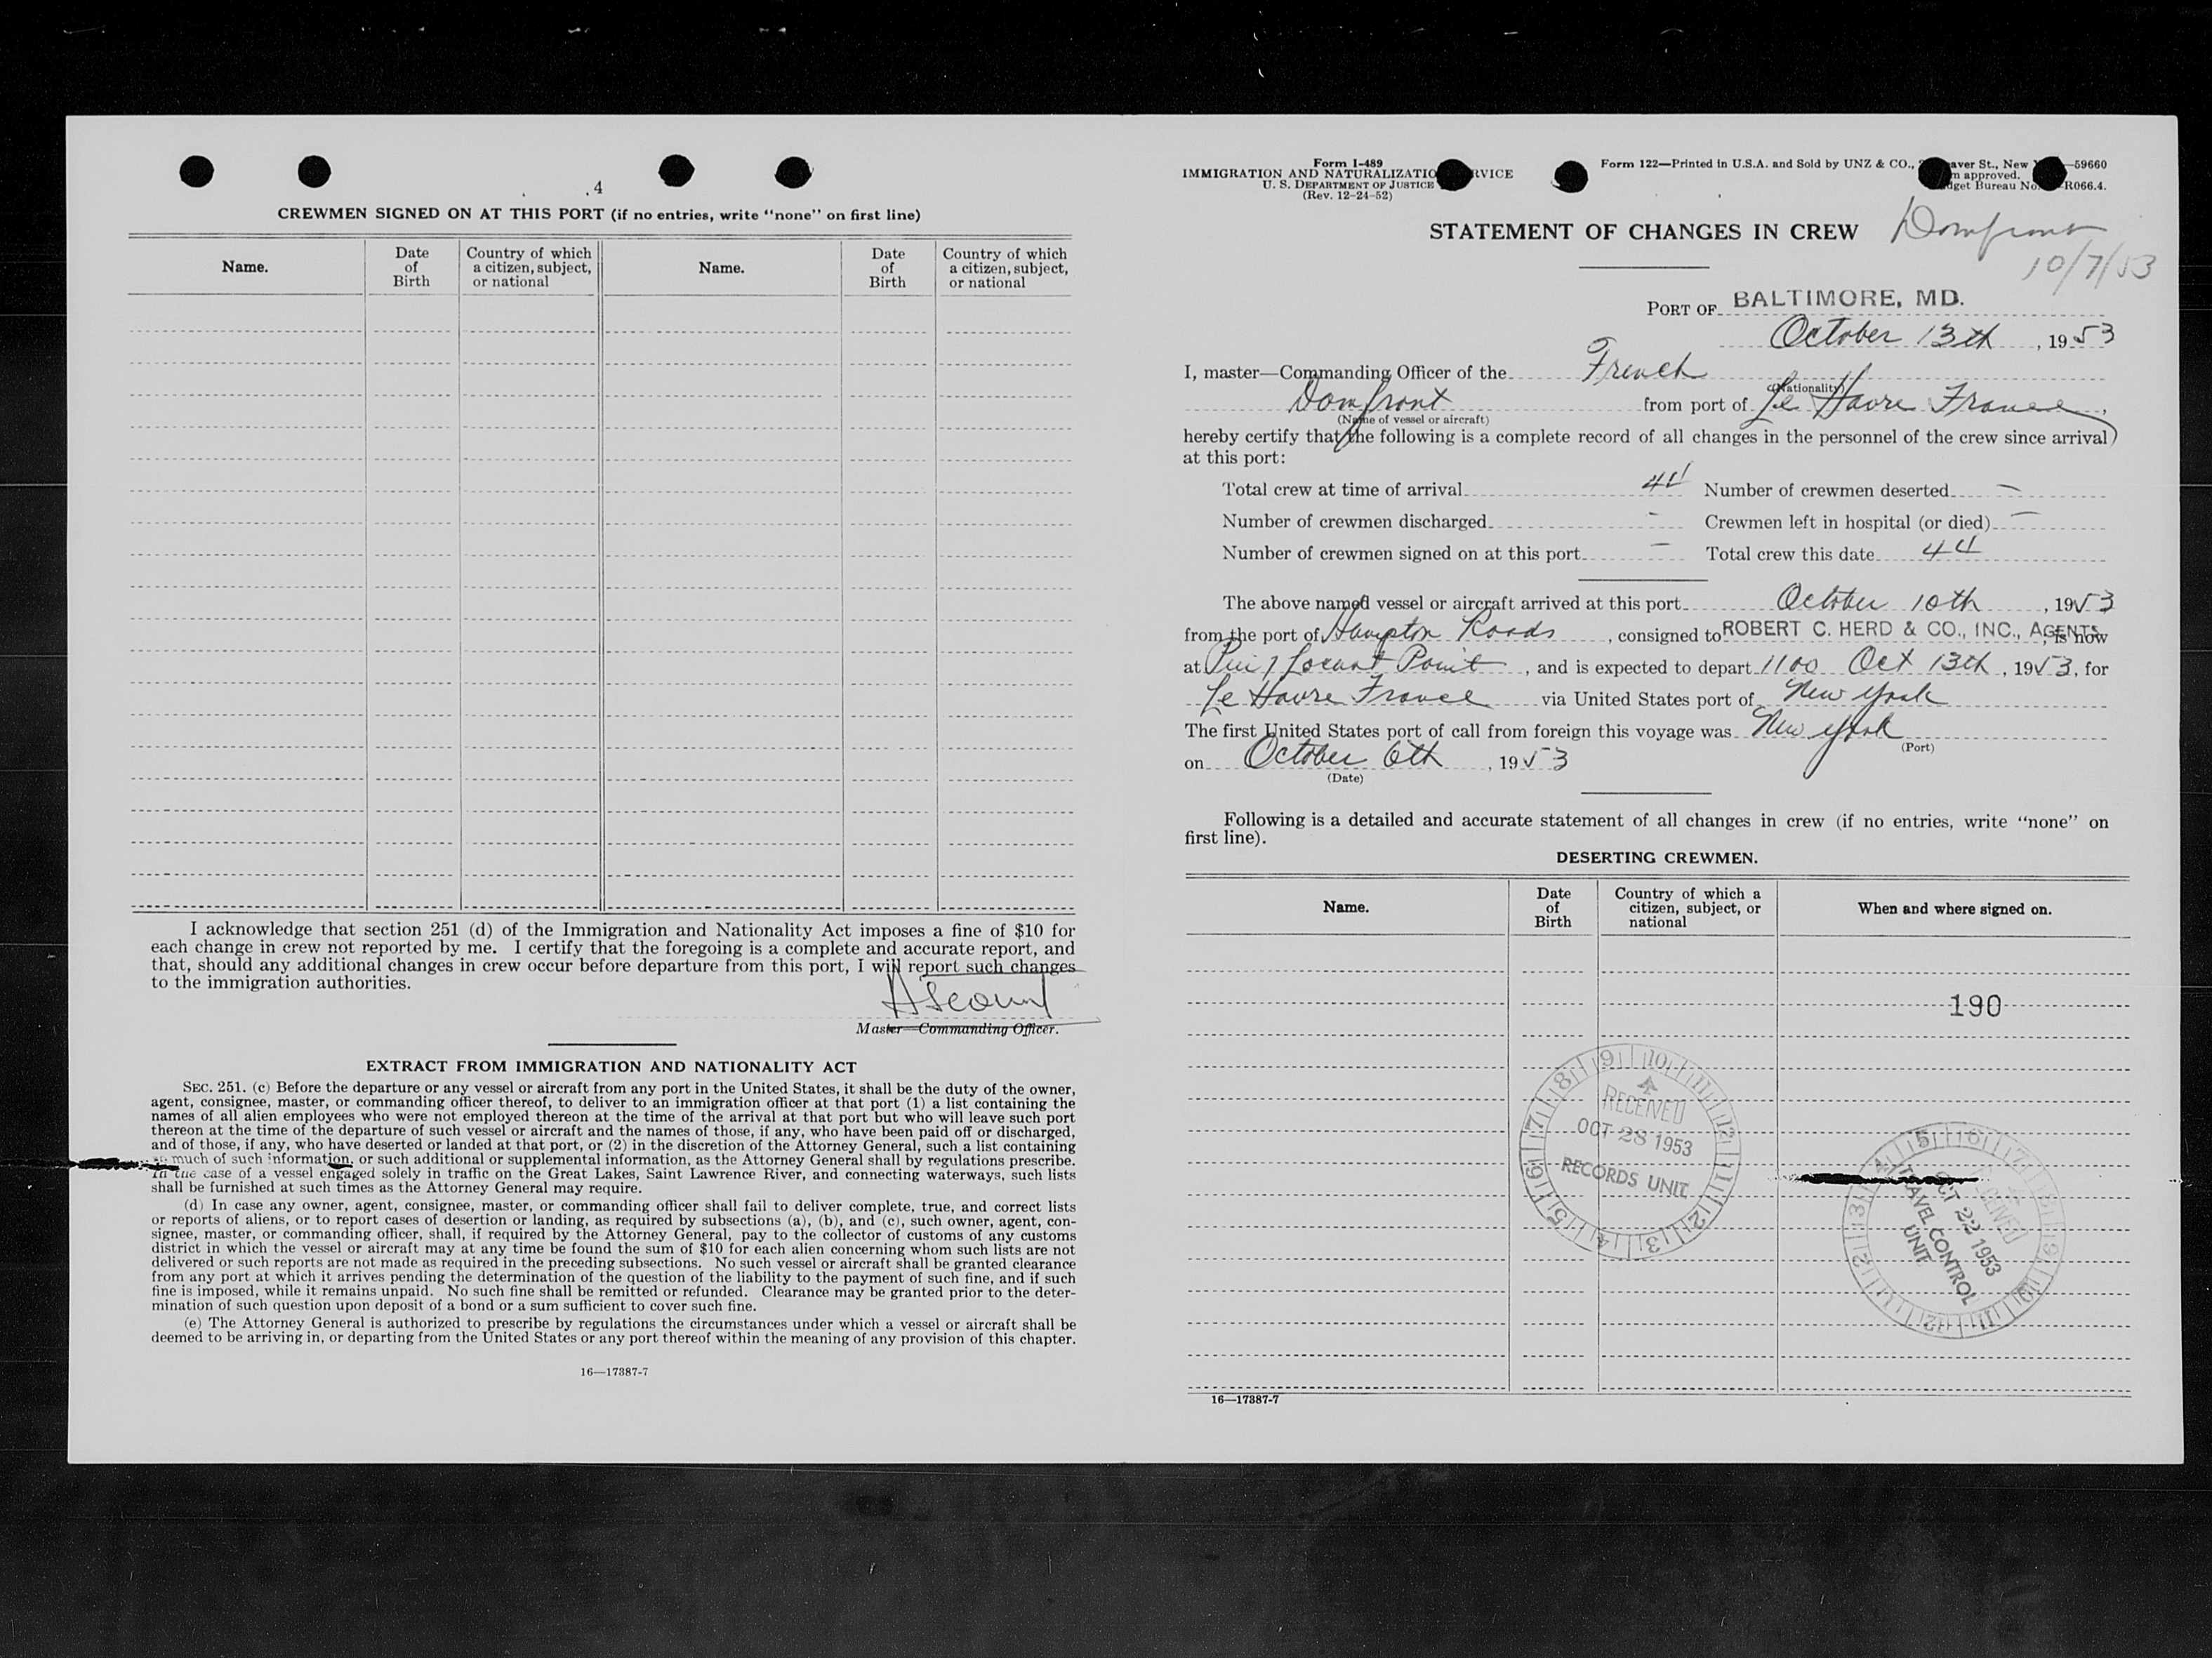 4
CREWMEN SIGNED ON AT THIS PORT (if no entries, write "none" on first line)
Name. Date of Birth Country of which a citizen, subject, or national Name. Date of Birth Country of which a citizen, subject, or national
I acknowledge that section 251 (d) of the Immigration and Nationality Act imposes a fine of $10 for
each change in crew not reported by me. I certify that the foregoing is a complete and accurate report, and
that, should any additional changes in crew occur before departure from this port, I will report such changes
to the immigration authorities.
Master—Commanding Officer.
EXTRACT FROM IMMIGRATION AND NATIONALITY ACT
SEC. 251. (c) Before the departure or any vessel or aircraft from any port in the United States, it shall be the duty of the owner,
agent, consignee, master, or commanding officer thereof, to deliver to an immigration officer at that port (1) a list containing the
names of all alien employees who were not employed thereon at the time of the arrival at that port but who will leave such port
thereon at the time of the departure of such vessel or aircraft and the names of those, if any, who have been paid off or discharged,
and of those, if any, who have deserted or landed at that port, or (2) in the discretion of the Attorney General, such a list containing
so much of such information, or such additional or supplemental information, as the Attorney General shall by regulations prescribe.
In the case of a vessel engaged solely in traffic on the Great Lakes, Saint Lawrence River, and connecting waterways, such lists
shall be furnished at such times as the Attorney General may require.
(d) In case any owner, agent, consignee, master, or commanding officer shall fail to deliver complete, true, and correct lists
or reports of aliens, or to report cases of desertion or landing, as required by subsections (a), (b), and (c), such owner, agent, con-
signee, master, or commanding officer, shall, if required by the Attorney General, pay to the collector of customs of any customs
district in which the vessel or aircraft may at any time be found the sum of $10 for each alien concerning whom such lists are not
delivered or such reports are not made as required in the preceding subsections. No such vessel or aircraft shall be granted clearance
from any port at which it arrives pending the determination of the question of the liability to the payment of such fine, and if such
fine is imposed, while it remains unpaid. No such fine shall be remitted or refunded. Clearance may be granted prior to the deter-
mination of such question upon deposit of a bond or a sum sufficient to cover such fine.
(e) The Attorney General is authorized to prescribe by regulations the circumstances under which a vessel or aircraft shall be
deemed to be arriving in, or departing from the United States or any port thereof within the meaning of any provision of this chapter.
16—17387-7
Form I-489
IMMIGRATION AND NATURALIZATIO RVICE
U. S. DEPARTMENT OF JUSTICE
(Rev. 12-24-52)
Form 122—Printed in U.S.A. and Sold by UNZ & CO., aver St., New —59660
m approved.
dget Bureau No. R066.4.
STATEMENT OF CHANGES IN CREW
Domfront
10/7/53
PORT OF BALTIMORE, MD.
October 13th, 1953
I, master—Commanding Officer of the French
(Nationality)
Domfront from port of Le Havre France,
(Name of vessel or aircraft)
hereby certify that the following is a complete record of all changes in the personnel of the crew since arrival
at this port:
Total crew at time of arrival 44 Number of crewmen deserted —
Number of crewmen discharged - Crewmen left in hospital (or died) —
Number of crewmen signed on at this port — Total crew this date 44
The above named vessel or aircraft arrived at this port October 10th, 1953
from the port of Hampton Roads, consigned to ROBERT C. HERD & CO., INC., AGENTS, is now
at Pier 7 Locust Point, and is expected to depart 1100 Oct 13th, 1953, for
Le Havre France via United States port of New York
The first United States port of call from foreign this voyage was New York
(Port)
on October 6th, 1953
(Date)
Following is a detailed and accurate statement of all changes in crew (if no entries, write "none" on
first line).
DESERTING CREWMEN.
Name. Date of Birth Country of which a citizen, subject, or national When and where signed on.
190
RECEIVED
OCT 28 1953
RECORDS UNIT
RECEIVED
OCT 22 1953
TRAVEL CONTROL
UNIT
16—17387-7